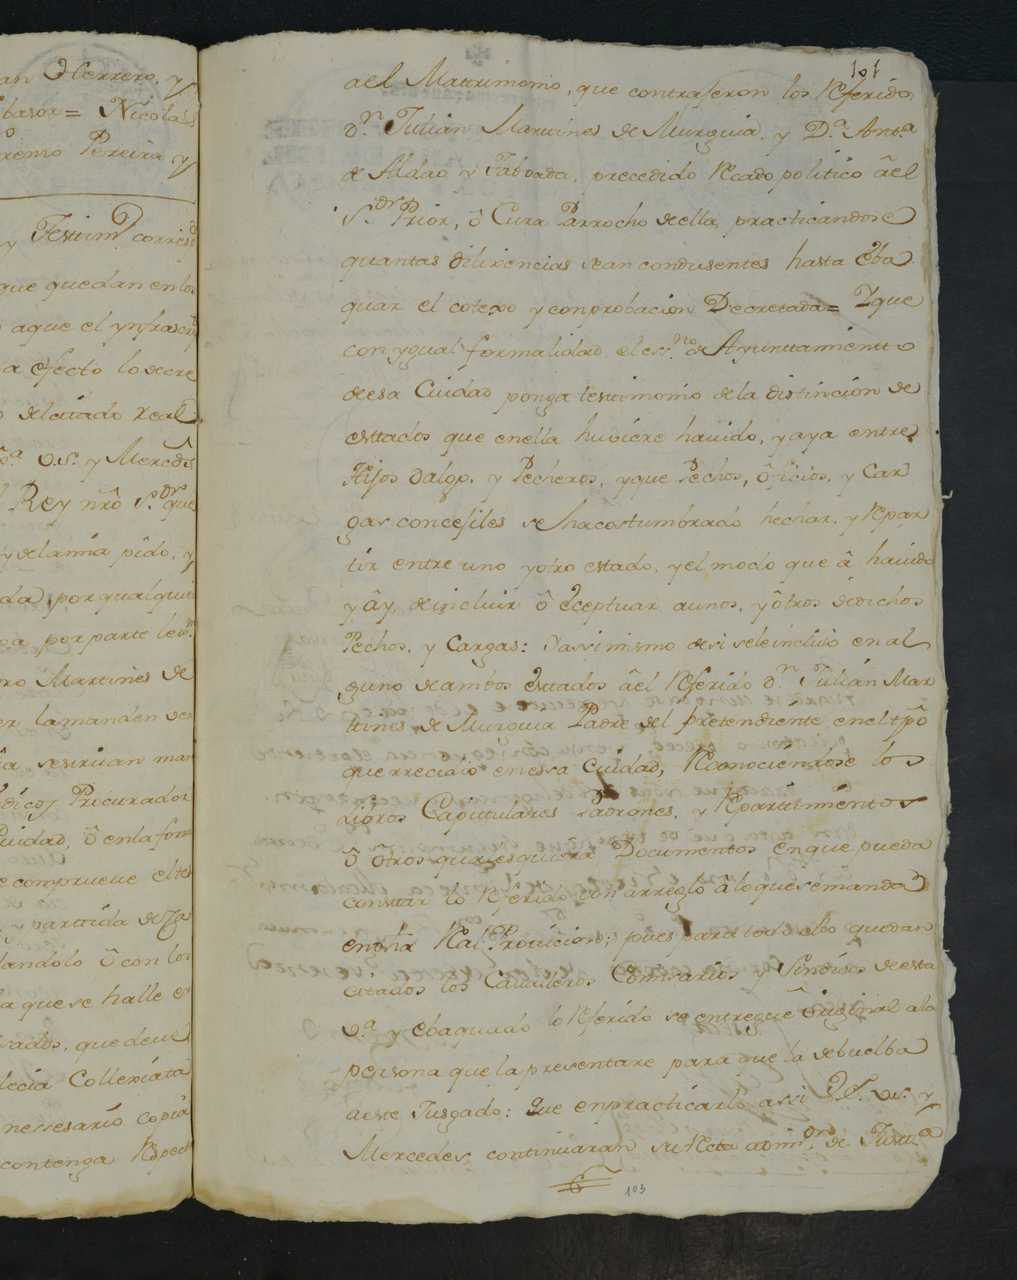 an Herrero, y
basor = Nicolas
renso Pereira y
y Testim.º corresp
que quedan en los
aque el ynfrascrip
a efecto lo decre
del citado Real
V.S. y Merceds
Rey nro S.or que
y de la mia pido, y
da por qualquie
pa, por parte lexma
ro Martines de
er la manden ver
sirvan man
dicos Procurador
Cuidad, ô en la form
e comprueve el tes
y partida de
landolo û con los
a que se halle en
vados, que deve
lecia Collexiata
nesesario copia
contenga Respect
101
âel Matrimonio, que contraseron los Referidos
D.n Julian Martines de Murguia, y D.a Ant.a
de Aldao y Taboada, precedido Recado politico âel
S.or Prior, ô Cura Parrocho de ella, practicandose
quantas dilixencias sean condusentes hasta Eba
quar el cotexo y conprobacion Decretada = Y que
con ygual formalidad el ess.no de Ayunttamientto
de esa Cuidad ponga testimonio de la distincion de
esttados que en ella huviere havido, y aya entre
Hijos dalgo, y Pecheros, y que Pechos, ôficios, y Car
gas concejiles se ha costumbrado hechar, y Repar
tir entre uno y otro estado, y el modo que â havido
y ây, de incluir ô Eceptuar aunos, y ôtros de dichos
Pechos, y Cargas: y assimismo de si se le incluio en al
guno de ambos Esttados âel Referido D.n Julian Mar
ttines de Murguia Padre del pretendiente en el tpô
que rrecidio en essa Cuidad, Reconociendose los
Libros Capitulares Padrones, y Repartimientos
ô ôtros quales quiera Documentos en que pueda
constar lo Referido con arreglo â lo que se manda
en dha Ral Provicion; pues para todo ello quedan
citados los Cavalleros Comisarios y Sindicos de esta
C.a y Ebaquado lo Referido se entregue ôriginal a la
persona que la presentare para que la debuelba
a este Jusgado: Que en practicarlo assi V.S. Vs. y
Mercedes continuaran su Recta admin.on de Justt.a
103